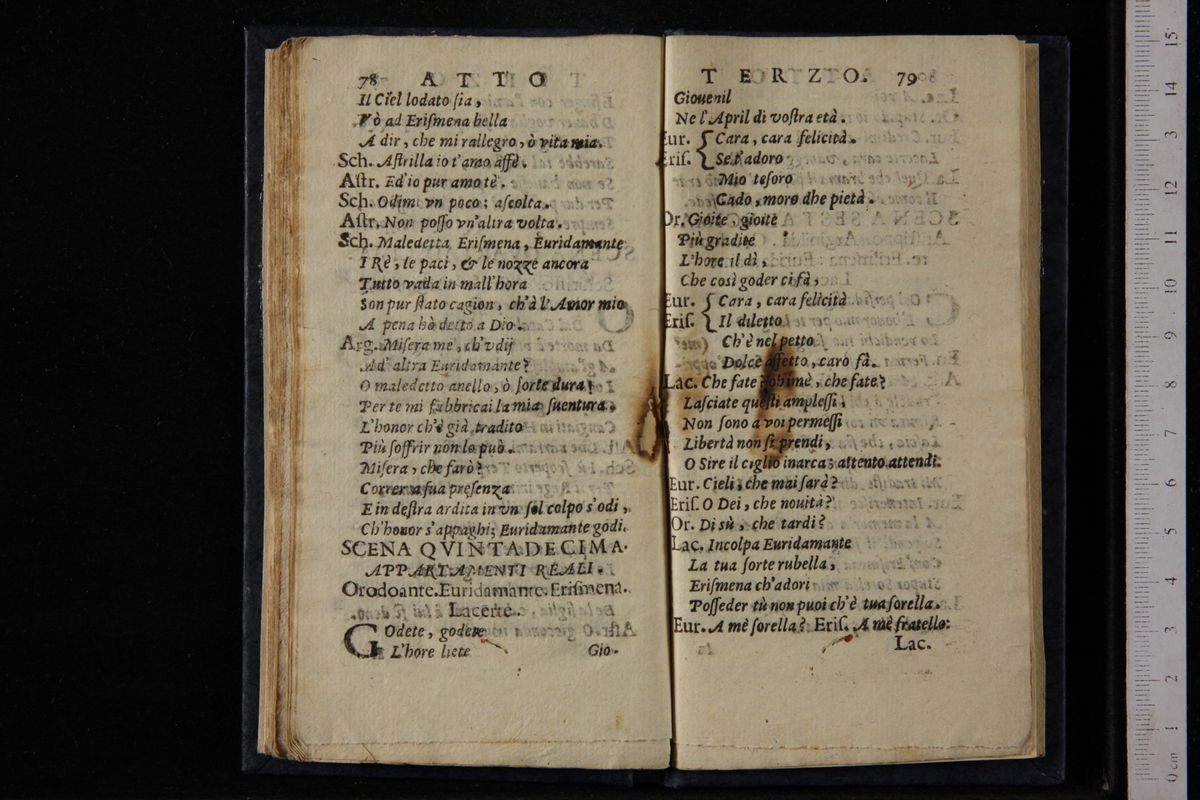 78 ATTO
Il Ciel lodato ſia,
Vò ad Eriſmena bella
A dir, che mi rallegro, ò vita mia.
Sch. Aſtrilla io t'amo affè.
Aſtr. Ed'io pur amo tè.
Sch. Odimi vn poco; aſcolta.
Aſtr. Non poſſo vn'altra volta.
Sch. Maledetta Eriſmena, Euridamante
I Rè, le paci, & le nozze ancora
Tutto vada in mall'hora
Son pur ſtato cagion, ch'à l'Amor mio
A pena hò detto a Dio.
Arg. Miſera me, ch'vdij
Ad' altra Euridamante?
O maledetto anello, ò ſorte dura!
Per te mi fabbricai la mia ſuentura.
L'honor ch'è già tradito
Più ſoffrir non lo può.
Miſera, che farò?
Correr a ſua preſenza
E in deſtra ardita in vn ſol colpo s'odi,
Ch'honor s'appaghi; Euridamante godi.
SCENA QVINTADECIMA.
APPARTAMENTI REALI.
Orodoante. Euridamante. Eriſmena.
Lacerte.
Godete, godete
L'hore liete
Gio-
TERZO. 79
Giouenil
Ne l'April di voſtra età.
Eur. { Cara, cara felicità.
Eriſ. { Se t'adoro
Mio teſoro
Cado, moro dhe pietà.
Or. Gioite, gioite
Più gradite
L'hore il dì,
Che così goder ci fà,
Eur. { Cara, cara felicità
Eriſ. { Il diletto
Ch'è nel petto
Dolce affetto, caro fà.
Lac. Che fate ohimè, che fate?
Laſciate queſti ampleſſi,
Non ſono a voi permeſſi
Libertà non ſi prendi,
O Sire il ciglio inarca: attento attendi.
Eur. Cieli, che mai ſarà?
Eriſ. O Dei, che nouità?
Or. Di sù, che tardi?
Lac. Incolpa Euridamante
La tua ſorte rubella,
Eriſmena ch'adori
Poſſeder tù non puoi ch'è tua ſorella.
Eur. A mè ſorella? Eriſ. A mè fratello:
Lac.